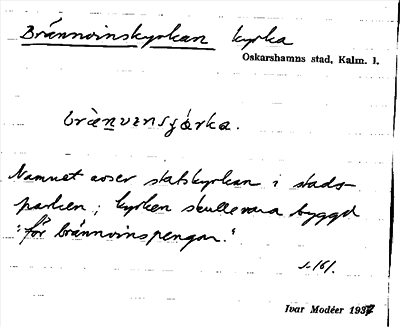 Brännvinskyrkan kyrka
Oskarshamns stad, Kalm. l.
Namnet avser statskyrkan i stads-
parken; kyrkan skulle vara byggd
"för brännvinspengar."
s. 161.
Ivar Modéer 1937